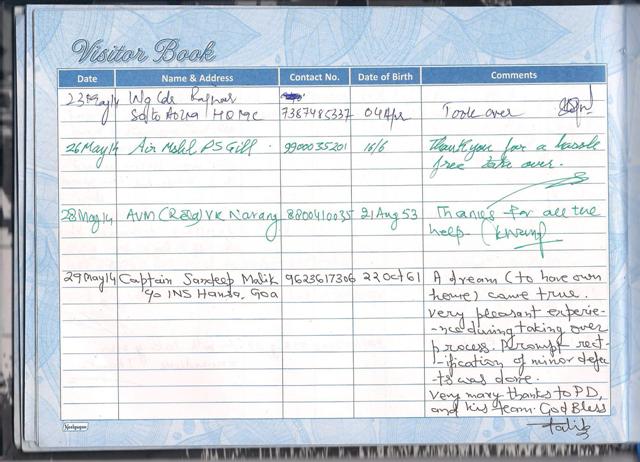 Visitor Book
Date Name & Address Contact No. Date of Birth Comments
23 May 14 Wg Cdr
7387485337 04 Apr Took over
26 May 14 Air Mshl PS Gill. 9900035201 16/6 Thankyou for a hassle
free take over.
28 May 14 AVM (Retd) VK Narang 8800410035 21 Aug 53 Thanks for all the
help.
29 May 14 Captain Sandeep Malik 9623617306 22 Oct 61 A dream (to have own
c/o INS Hansa, Goa home) came true.
very pleasant experie-
-nce during taking over
process. Prompt rect-
-ification of minor defec-
-ts was done.
very many thanks to PD,
and his team. God Bless
Neelgagan